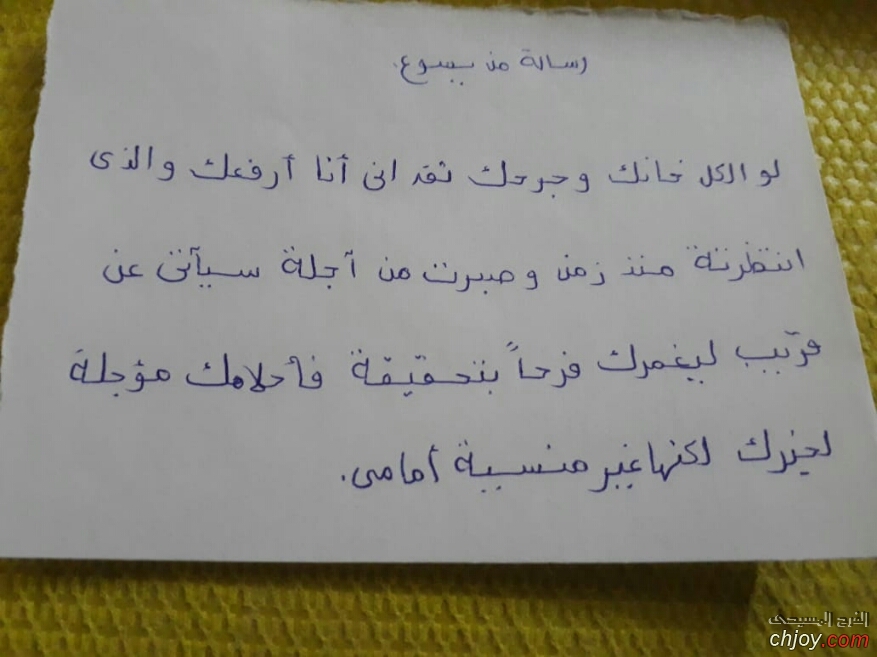 رسالة من يسوع.
لو الكل خانك وجرحك ثقد انى أنا أرفعك والذى
انتظرتة منذ زمن وصبرت من آجلة سيآتى عن
قريب ليغمرك فرحاً بتحقيقة فأحلامك مؤجلة
لخيرك لكنها غير منسية أمامى.
الفرح المسيحى
chjoy.com